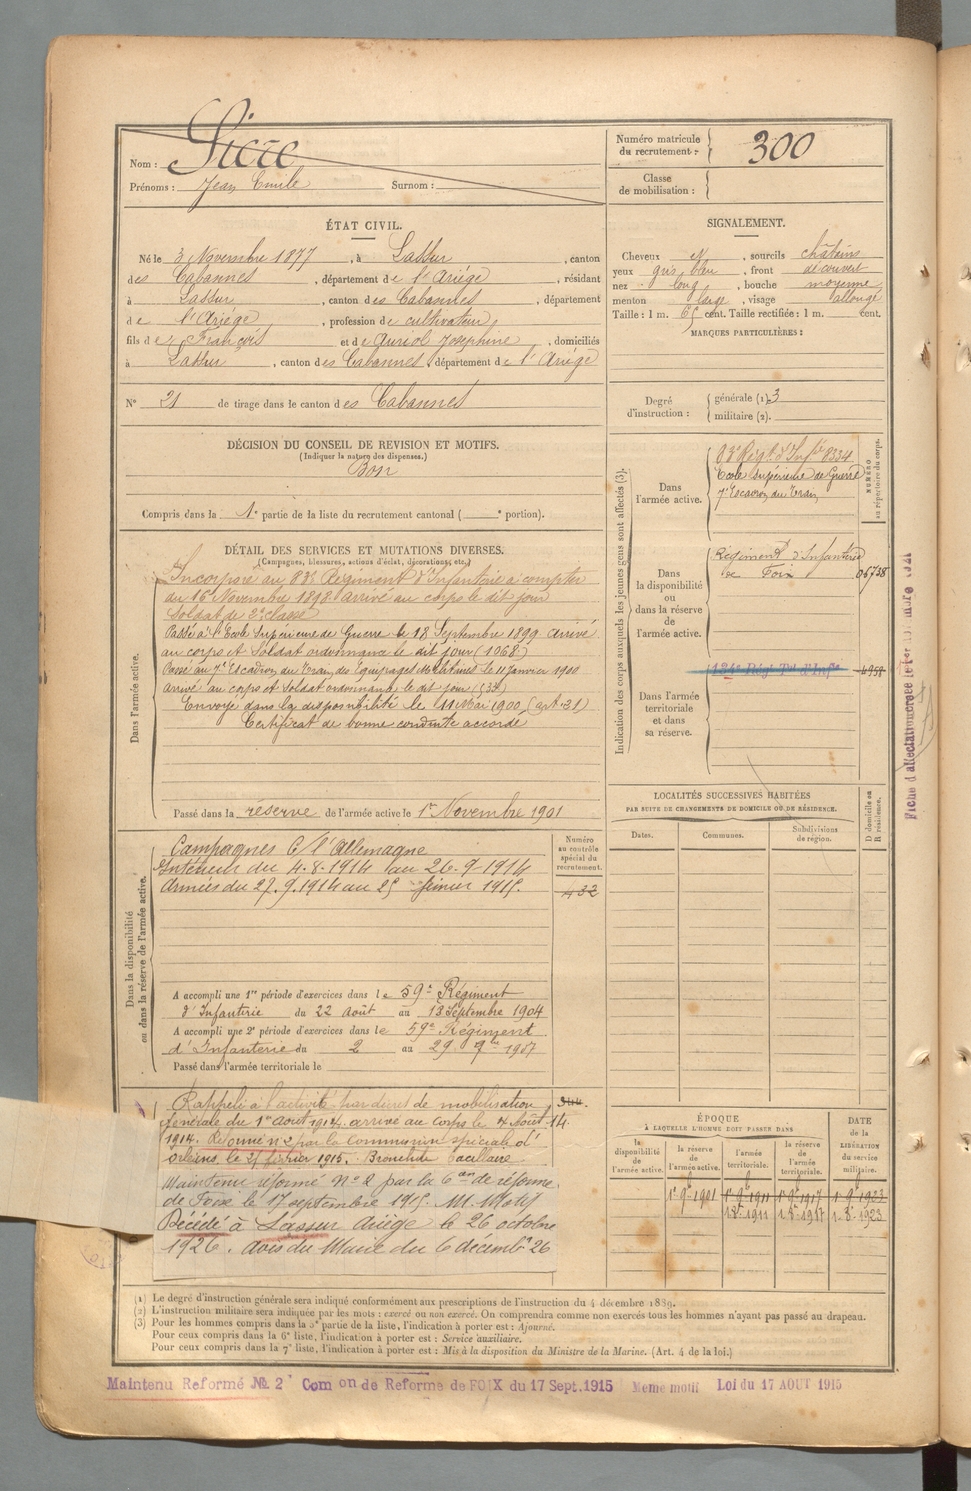 Nom : Sicre
Prénoms : Jean Emile Surnom :
Numéro matricule du recrutement : 300
Classe de mobilisation :
ÉTAT CIVIL.
Né le 3 Novembre 1877, à Lassur, canton
des Cabannes, département de l'Ariége, résidant
à Lassur, canton des Cabannes, département
de l'Ariége, profession de cultivateur
fils de François et de Auriol Josephine, domiciliés
à Lassur, canton des Cabannes, département de l'Ariége
N° 21 de tirage dans le canton des Cabannes
SIGNALEMENT.
Cheveux et, sourcils châtains
yeux gris bleu, front découvert
nez long, bouche moyenne
menton large, visage allongé
Taille : 1 m. 65 cent. Taille rectifiée : 1 m. cent.
MARQUES PARTICULIÈRES :
Degré d'instruction : générale (1) 3
militaire (2).
DÉCISION DU CONSEIL DE REVISION ET MOTIFS.
(Indiquer la nature des dispenses.)
Bon
Compris dans la 1e partie de la liste du recrutement cantonal ( e portion).
DÉTAIL DES SERVICES ET MUTATIONS DIVERSES.
(Campagnes, blessures, actions d'éclat, décorations, etc.)
Dans l'armée active.
Incorporé au 83e Régiment d'Infanterie à compter
du 16 Novembre 1898 arrivé au corps le dit jour
Soldat de 2e classe
Passé à l'Ecole Supérieure de Guerre le 18 Septembre 1899 arrivé
au corps et Soldat ordonnance le dit jour (1068)
Passé au 7e Escadron du Train des Equipages Militaires le 11 Janvier 1900
arrivé au corps et Soldat ordonnance le dit jour
Envoyé dans la disponibilité le 11 Mai 1900 (art. 31)
Certificat de bonne conduite accordé
Passé dans la réserve de l'armée active le 1er Novembre 1901
Indication des corps auxquels les jeunes gens sont affectés (3).
NUMÉRO au répertoire du corps.
Dans l'armée active.
83e Régt d'Inf ie 8334
Ecole Supérieure de Guerre
7e Escadron du Train
Dans la disponibilité ou dans la réserve de l'armée active.
Régiment d'Infanterie
de Foix 05738
Dans l'armée territoriale et dans sa réserve.
134e Régt Tal d'Infie 4958
LOCALITÉS SUCCESSIVES HABITÉES
PAR SUITE DE CHANGEMENTS DE DOMICILE OU DE RÉSIDENCE.
Dates. Communes. Subdivisions de région. D domicile ou R résidence.
Dans la disponibilité ou dans la réserve de l'armée active.
Numéro au contrôle spécial du recrutement.
432
Campagnes C l'Allemagne
Intérieur du 4.8.1914 au 26.9.1914
Armées du 27.9.1914 au 25 février 1915.
A accompli une 1re période d'exercices dans le 59e Régiment
d'Infanterie du 22 août au 13 Septembre 1904
A accompli une 2e période d'exercices dans le 59e Régiment
d'Infanterie du 2 au 29 1907
Passé dans l'armée territoriale le
Rappelé à l'activité par décret de mobilisation
générale du 1er août 1914. arrivé au corps le 4 Août 14
1914. Réformé n°2 par la Commission spéciale d'
Orléans le 25 février 1915. Bronchite bacillaire
Maintenu réformé N° 2 par la Con de réforme
de Foix le 17 septembre 1915. M. Motif
Décédé à Lassur Ariège le 26 octobre
1926. avis du Maire du 6 décembre 26
ÉPOQUE
À LAQUELLE L'HOMME DOIT PASSER DANS
la disponibilité de l'armée active. la réserve de l'armée active. l'armée territoriale. la réserve de l'armée territoriale. DATE de la LIBÉRATION DU service militaire.
1er 9bre 1901 1er 9bre 1911 1er 9bre 1917 1er 9bre 1923
(1) Le degré d'instruction générale sera indiqué conformément aux prescriptions de l'instruction du 4 décembre 1889.
(2) L'instruction militaire sera indiquée par les mots : exercé ou non exercé. On comprendra comme non exercés tous les hommes n'ayant pas passé au drapeau.
(3) Pour les hommes compris dans la 5e partie de la liste, l'indication à porter est : Ajourné.
Pour ceux compris dans la 6e liste, l'indication à porter est : Service auxiliaire.
Pour ceux compris dans la 7e liste, l'indication à porter est : Mis à la disposition du Ministre de la Marine. (Art. 4 de la loi.)
Maintenu Reformé No 2 Com on de Reforme de FOIX du 17 Sept. 1915 Meme motif Loi du 17 AOUT 1915